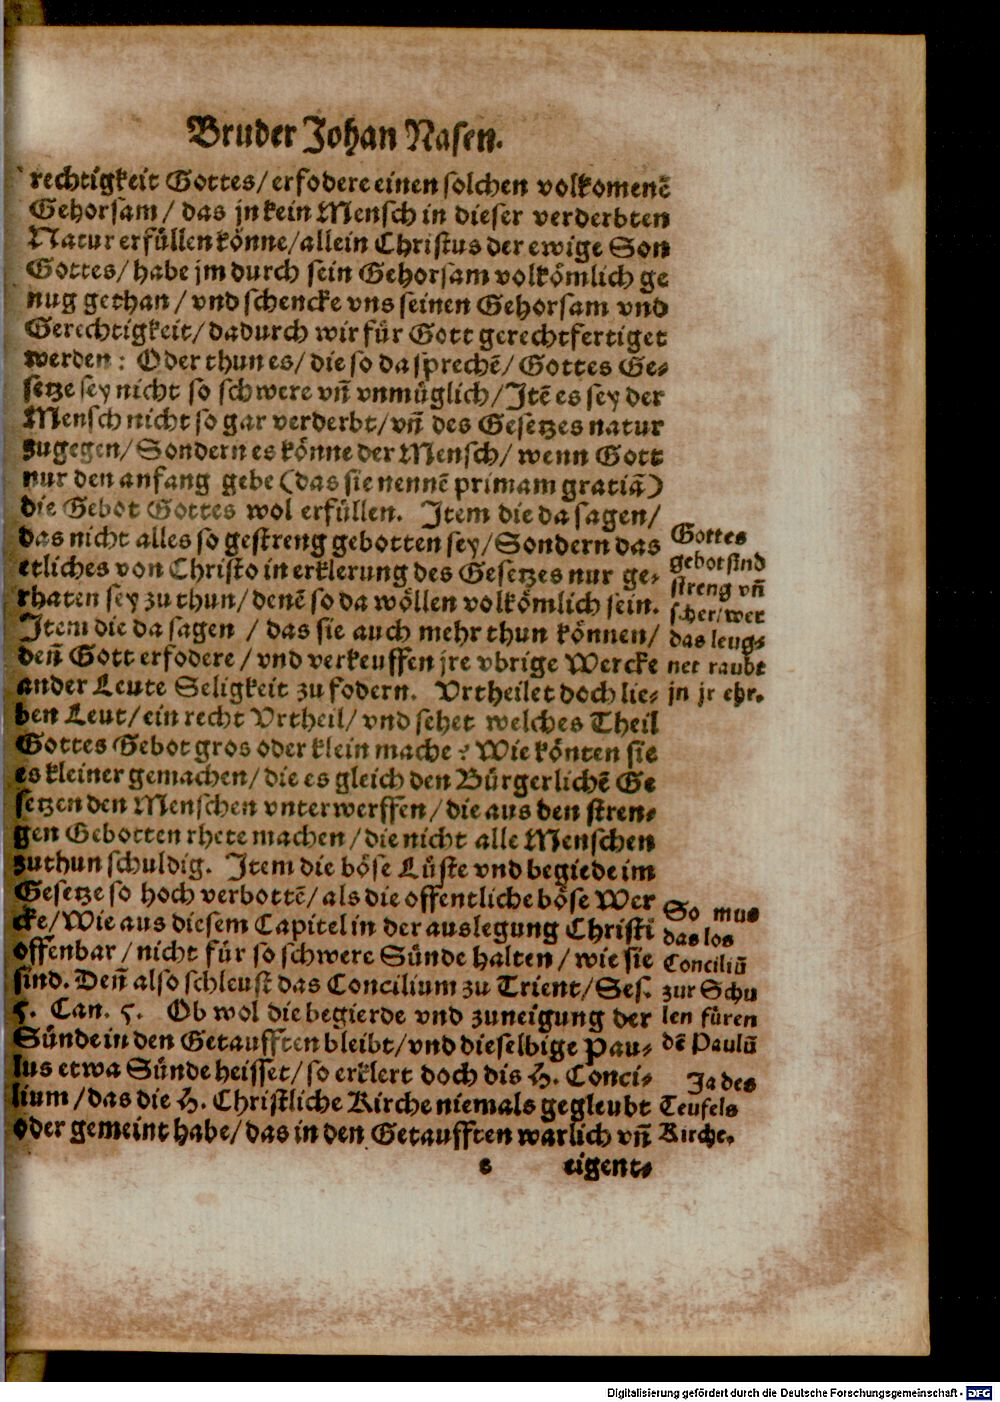 Bruder Johan Nasen.
rechtigkeit Gottes/ erfodere einen solchen volkomenẽ
Gehorsam/ das jn kein Mensch in dieser verderbten
Natur erfüllen könne/ allein Christus der ewige Son
Gottes/ habe jm durch sein Gehorsam volkömlich ge
nug gethan/ vnd schencke vns seinen Gehorsam vnd
Gerechtigkeit/ dadurch wir für Gott gerechtfertiget
werden: Oder thun es/ die so da sprechẽ/ Gottes Ge-
setze sey nicht so schwere vñ vnmüglich/ Jtẽ es sey der
Mensch nicht so gar verderbt/ vñ des Gesetzes natur
zugegen/ Sondern es könne der Mensch/ wenn Gott
nur den anfang gebe (das sie nennẽ primam gratiã)
die Gebot Gottes wol erfüllen. Jtem die da sagen/
das nicht alles so gestreng gebotten sey/ Sondern das
etliches von Christo in erklerung des Gesetzes nur ge-
rhaten sey zu thun/ denẽ so da wöllen volkömlich sein.
Jtem die da sagen/ das sie auch mehr thun können/
deñ Gott erfodere/ vnd verkeuffen jre vbrige Wercke
ander Leute Seligkeit zu fodern. Vrtheilet doch lie-
ben Leut/ ein recht Vrtheil/ vnd sehet welches Theil
Gottes Gebot gros oder klein mache? Wie könten sie
es kleiner gemachen/ die es gleich den Bürgerlichẽ Ge
setzen den Menschen vnterwerffen/ die aus den stren-
gen Gebotten rhete machen/ die nicht alle Menschen
zuthun schuldig. Jtem die böse Lüste vnd begiede im
Gesetze so hoch verbottẽ/ als die offentliche böse Wer
cke/ Wie aus diesem Capitel in der auslegung Christi
offenbar/ nicht für so schwere Sünde halten/ wie sie
sind. Deñ also schleust das Concilium zu Trient/ Ses.
5. Can. 5. Ob wol die begierde vnd zuneigung der
Sünde in den Getaufften bleibt/ vnd dieselbige Pau-
lus etwa Sünde heisset/ so erklert doch dis H. Conci-
lium/ das die H. Christliche Kirche niemals gegleubt
oder gemeint habe/ das in den Getaufften warlich vñ
e eigent-
Gottes
gebot sind
streng vñ
scher/ wer
das leug-
net raubt
jn jr ehr.
So mus
das los
Conciliũ
zur Schu
len füren
dẽ Paulũ
Ja des
Teufels
Kirche.
Digitalisierung gefördert durch die Deutsche Forschungsgemeinschaft - DFG